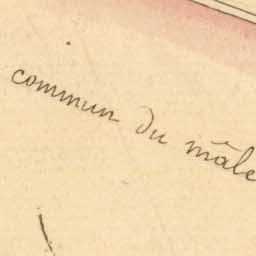 commun du mâle